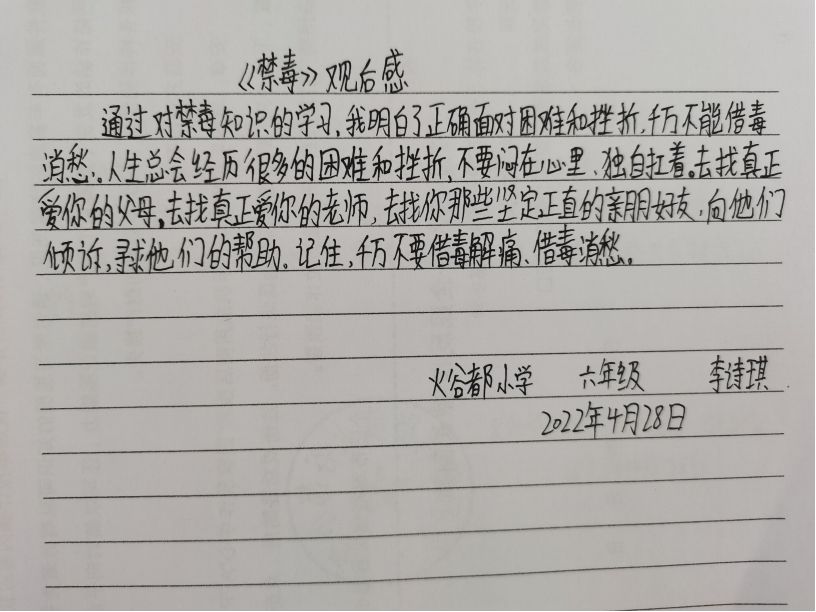 《禁毒》观后感
通过对禁毒知识的学习,我明白了正确面对困难和挫折,千万不能借毒
消愁。人生总会经历很多的困难和挫折,不要闷在心里、独自扛着。去找真正
爱你的父母。去找真正爱你的老师,去找你那些坚定正直的亲朋好友,向他们
倾诉,寻求他们的帮助。记住,千万不要借毒解痛、借毒消愁。
火谷都小学 六年级 李诗琪
2022年4月28日